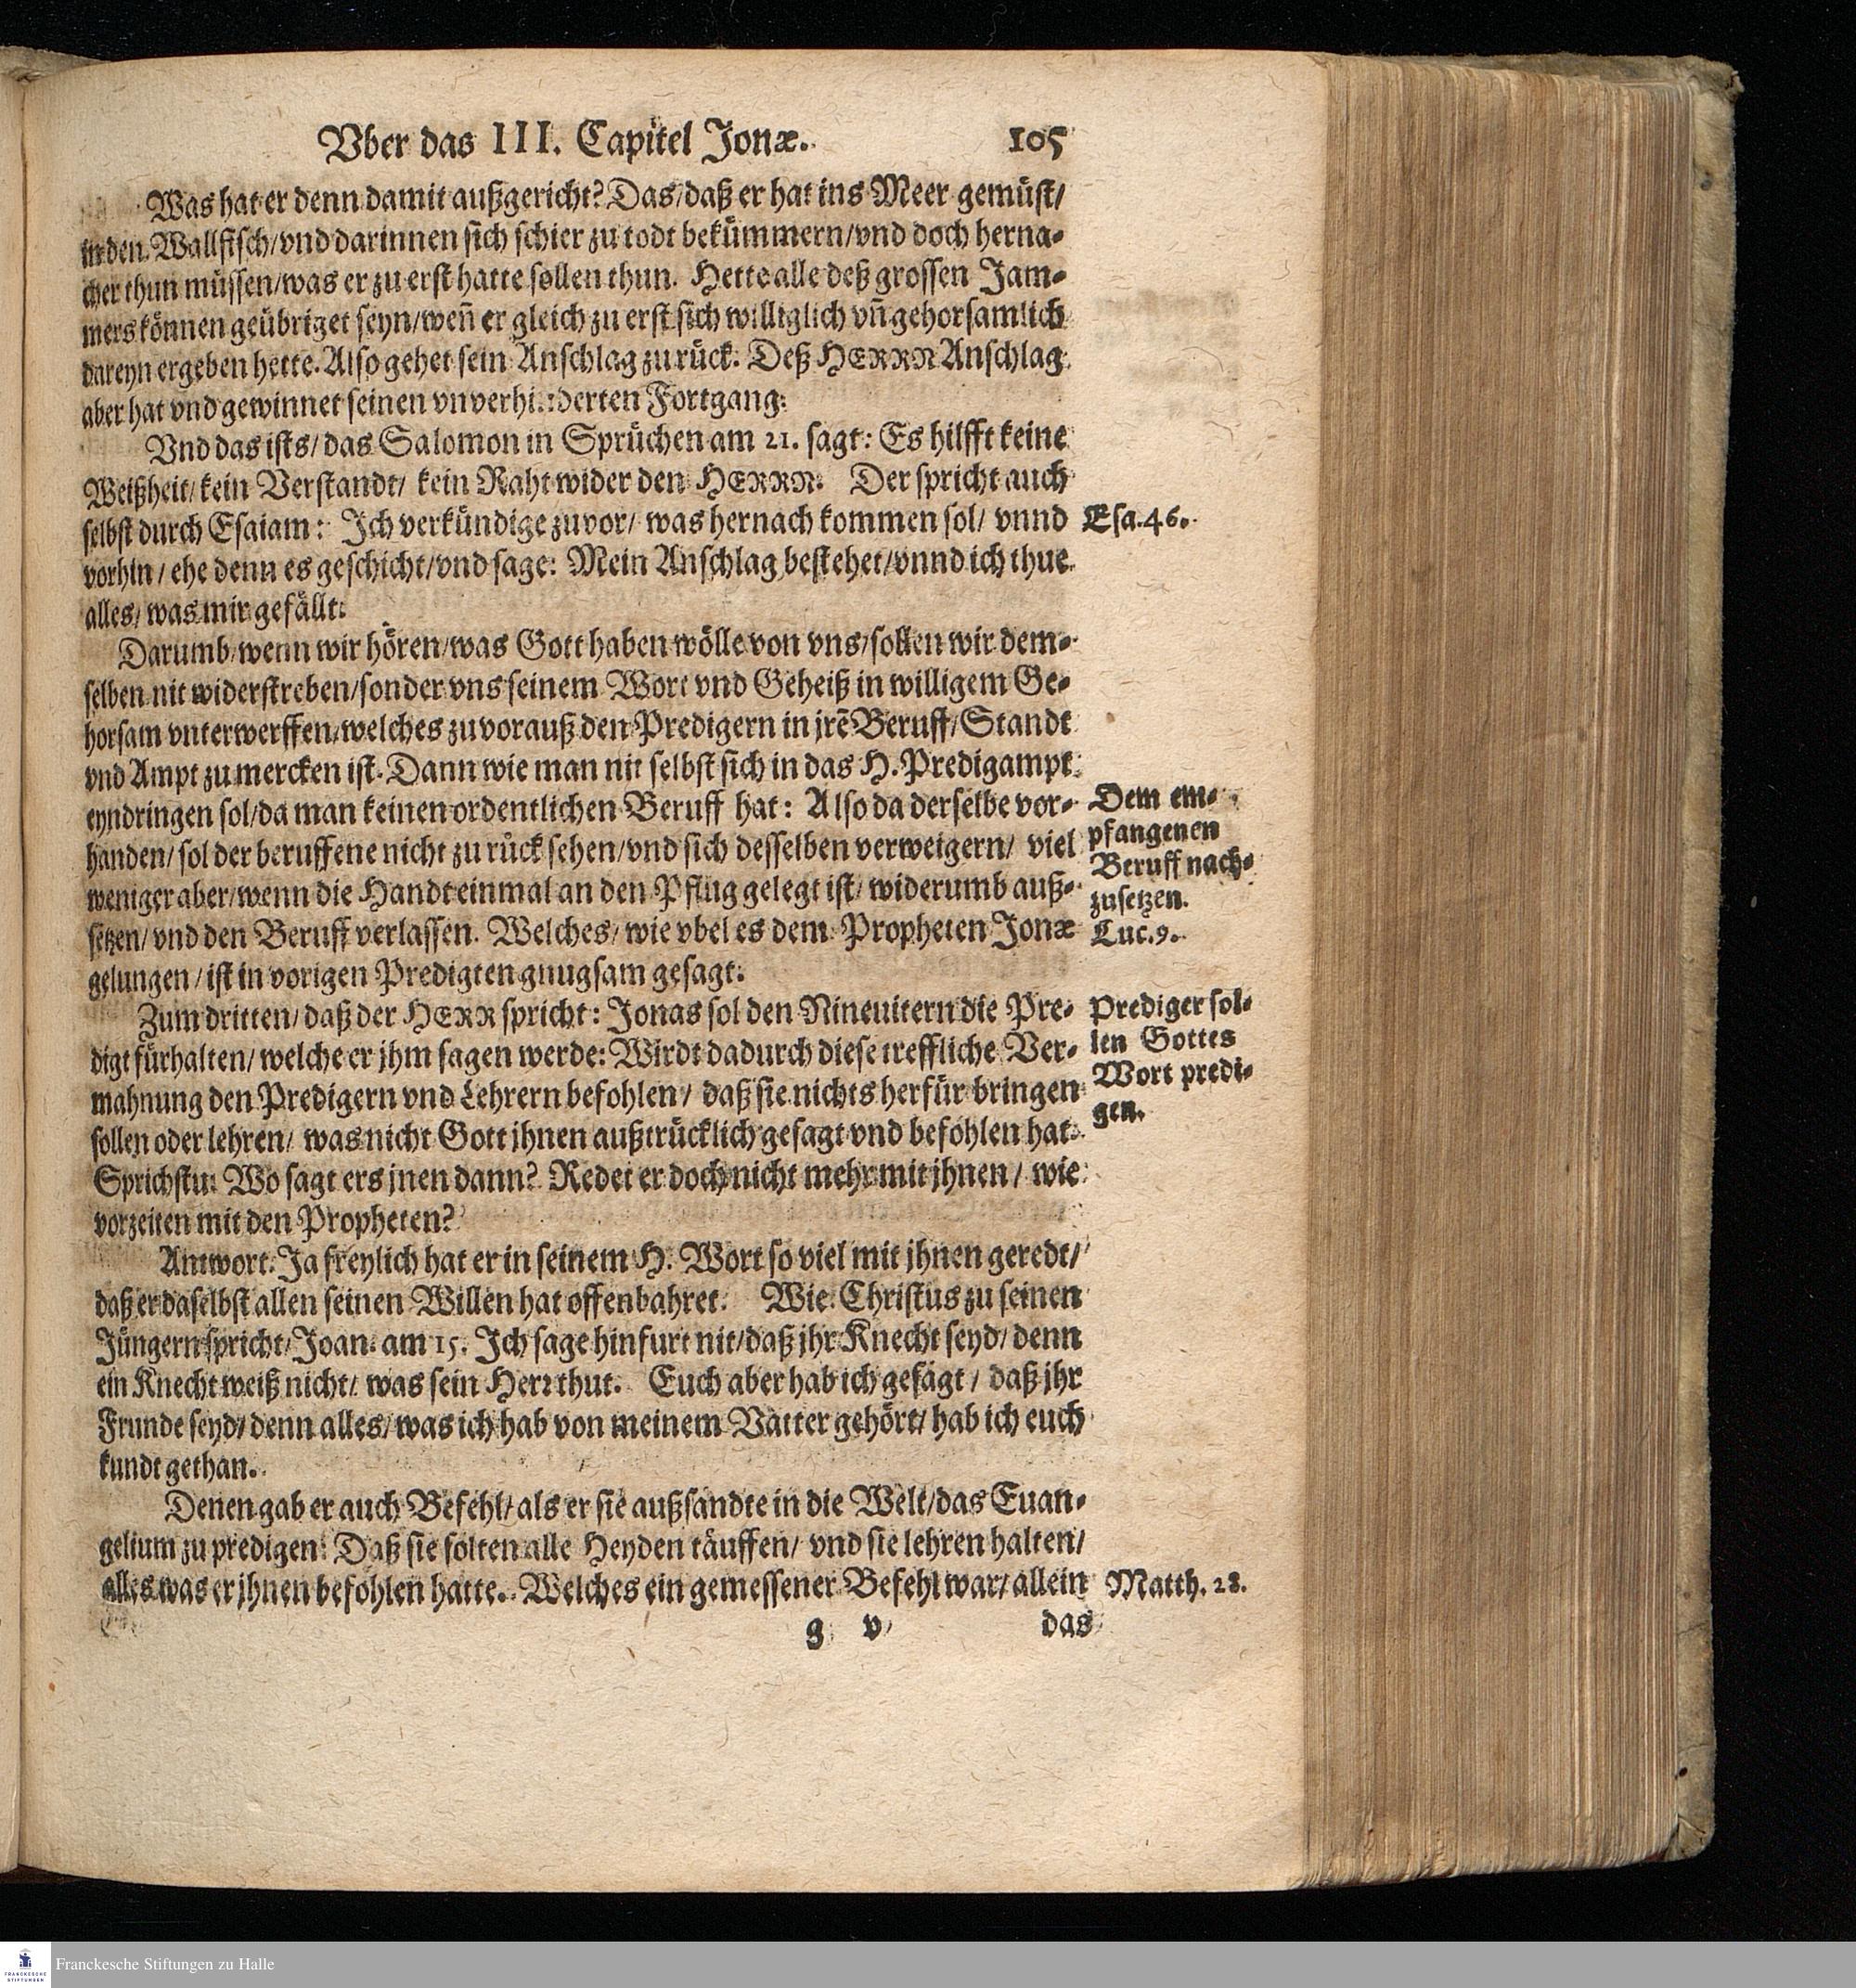 Vber das III. Capitel Jonæ. 105
Was hat er denn damit außgericht? Das/daß er hat ins Meer gemüst/
in den Wallfisch/vnd darinnen sich schier zu todt bekümmern/vnd doch herna-
cher thun müssen/was er zu erst hatte sollen thun. Hette alle deß grossen Jam-
mers können geübriget seyn/weñ er gleich zu erst sich williglich vñ gehorsamlich
dareyn ergeben hette. Also gehet sein Anschlag zu rück. Deß HERRN Anschlag
aber hat vnd gewinnet seinen vnverhinderten Fortgang.
Vnd das ists/das Salomon in Sprüchen am 21. sagt: Es hilfft keine
Weißheit/kein Verstandt/ kein Raht wider den HERRN. Der spricht auch
selbst durch Esaiam: Ich verkündige zuvor/ was hernach kommen sol/ vnnd
Esa.46.
vorhin/ ehe denn es geschicht/vnd sage: Mein Anschlag bestehet/vnnd ich thue
alles/was mir gefällt.
Darumb/wenn wir hören/was Gott haben wölle von vns/sollen wir dem-
selben nit widerstreben/sonder vns seinem Wort vnd Geheiß in willigem Ge-
horsam vnterwerffen/welches zuvorauß den Predigern in jrẽ Beruff/Standt
vnd Ampt zu mercken ist. Dann wie man nit selbst sich in das H. Predigampt
eyndringen sol/da man keinen ordentlichen Beruff hat: Also da derselbe vor-
handen/ sol der beruffene nicht zu rück sehen/vnd sich desselben verweigern/ viel
weniger aber/wenn die Handt einmal an den Pflug gelegt ist/ widerumb auß-
setzen/ vnd den Beruff verlassen. Welches/ wie vbel es dem Propheten Jonæ
gelungen/ ist in vorigen Predigten gnugsam gesagt.
Dem em-
pfangenen
Beruff nach-
zusetzen.
Luc.9.
Zum dritten/ daß der HERR spricht: Jonas sol den Nineuitern die Pre-
digt fürhalten/ welche er jhm sagen werde: Wirdt dadurch diese treffliche Ver-
mahnung den Predigern vnd Lehrern befohlen/ daß sie nichts herfür bringen
sollen oder lehren/ was nicht Gott jhnen außtrücklich gesagt vnd befohlen hat.
Sprichstu: Wo sagt ers jnen dann? Redet er doch nicht mehr mit jhnen/ wie
vorzeiten mit den Propheten?
Prediger sol-
len Gottes
Wort predi-
gen.
Antwort. Ja freylich hat er in seinem H. Wort so viel mit jhnen geredt/
daß er daselbst allen seinen Willen hat offenbahret. Wie Christus zu seinen
Jüngern spricht/Joan. am 15. Ich sage hinfurt nit/daß jhr Knecht seyd/ denn
ein Knecht weiß nicht/ was sein Herr thut. Euch aber hab ich gesagt/ daß jhr
Frunde seyd/ denn alles/ was ich hab von meinem Vatter gehört/ hab ich euch
kundt gethan.
Denen gab er auch Befehl/ als er sie außsandte in die Welt/das Euan-
gelium zu predigen: Daß sie solten alle Heyden täuffen/ vnd sie lehren halten/
alles was er jhnen befohlen hatte. Welches ein gemessener Befehl war/ allein
Matth. 28.
g v das
Franckesche Stiftungen zu Halle
FRANCKESCHE
STIFTUNGEN